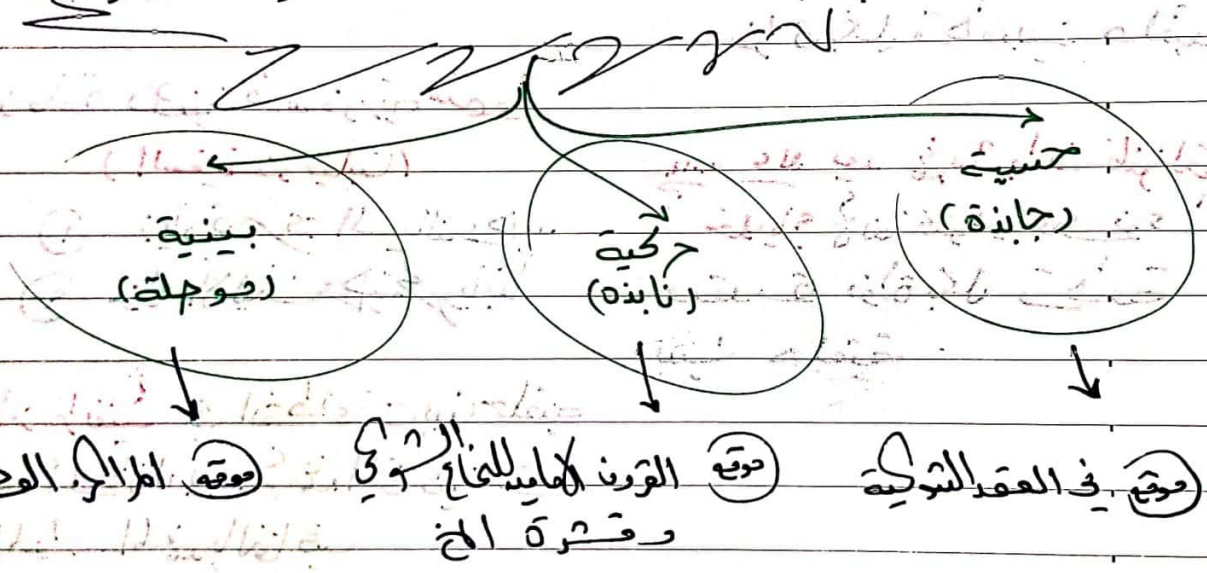 حسية
(جابذة)
حركية
(نابذه)
بينية
(موصلة)
موقع في العقد الشوكية
موقع القرون الامامية للنخاع الشوكي
و قشرة المخ
موقع المراكز